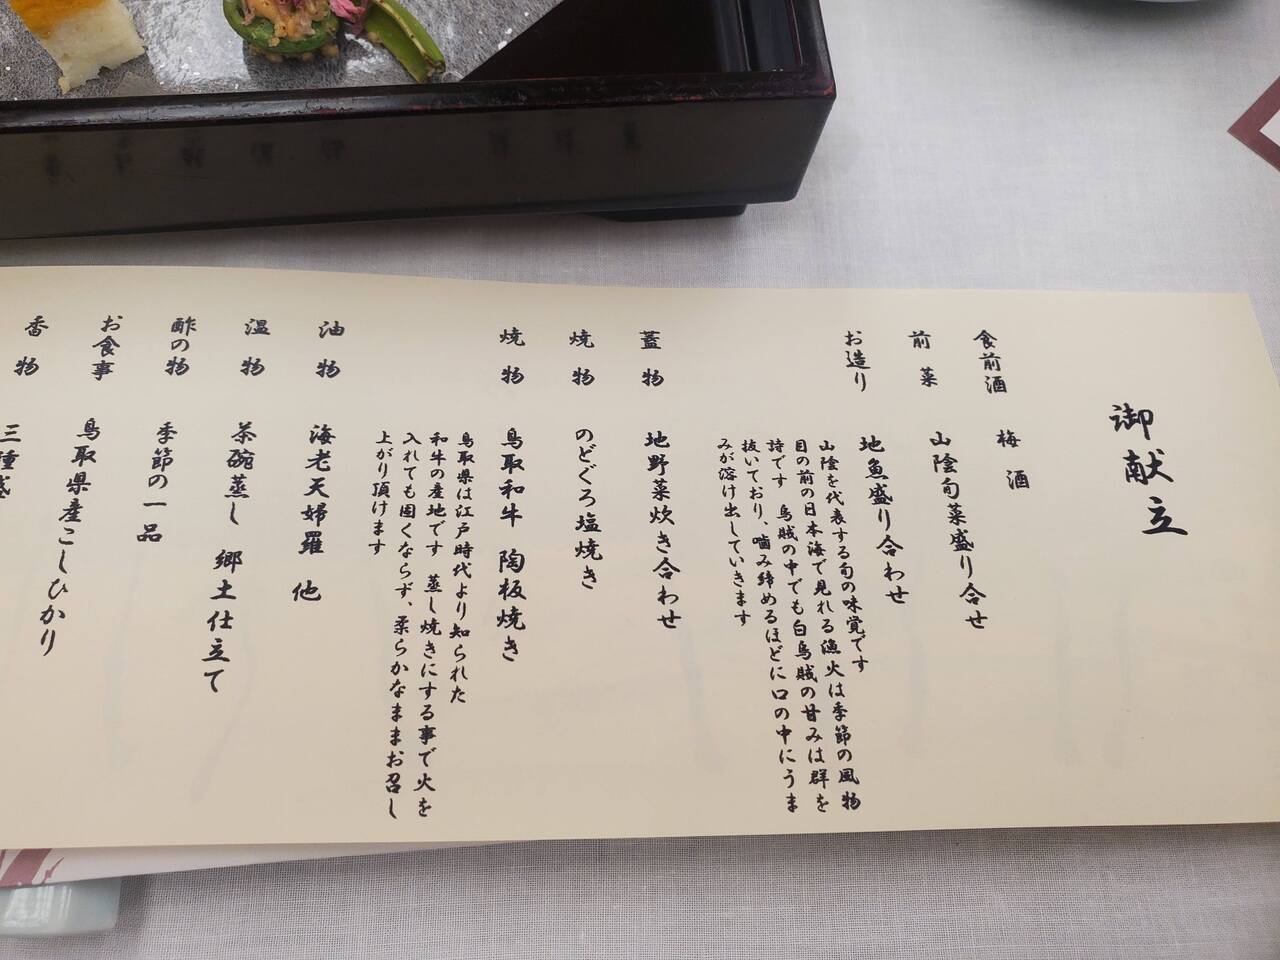 御献立
食前酒 梅酒
前菜 山陰旬菜盛り合せ
お造り 地魚盛り合わせ
山陰を代表する旬の味覚です
目の前の日本海で見れる漁火は季節の風物
詩です 烏賊の中でも白烏賊の甘みは群を
抜いており、噛み締めるほどに口の中にうま
みが溶け出していきます
蓋物 地野菜炊き合わせ
焼物 のどぐろ塩焼き
焼物 鳥取和牛 陶板焼き
鳥取県は江戸時代より知られた
和牛の産地です 蒸し焼きにする事で火を
入れても固くならず、柔らかなままお召し
上がり頂けます
油物 海老天婦羅 他
温物 茶碗蒸し 郷土仕立て
酢の物 季節の一品
お食事 鳥取県産こしひかり
香物 三種盛